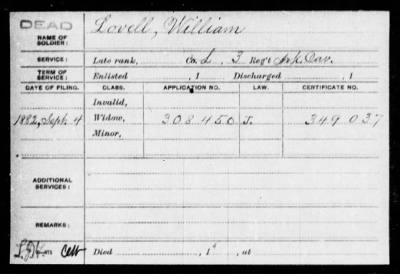 DEAD
NAME OF SOLDIER: Lovell, William
SERVICE: Late rank, Co. L, 3 Reg't Ark. Cav.
TERM OF SERVICE: Enlisted , 1 Discharged , 1
DATE OF FILING. CLASS. APPLICATION NO. LAW. CERTIFICATE NO.
Invalid,
1892, Sept. 4 Widow, 308450 J. 349037
Minor,
ADDITIONAL SERVICES:
REMARKS:
Died , 1 , at